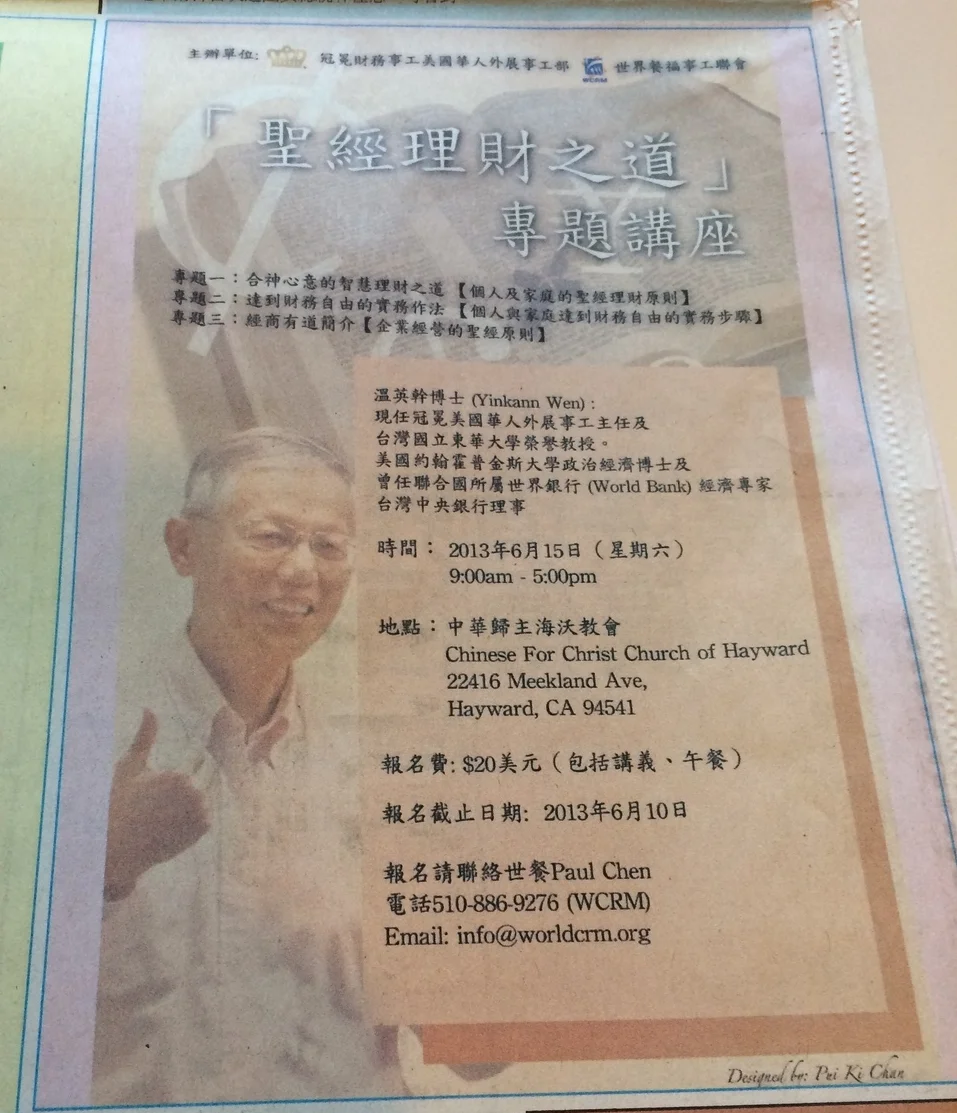 主辦單位: 冠冕財務事工美國華人外展事工部 WCRM 世界餐福事工聯會
「聖經理財之道」
專題講座
專題一：合神心意的智慧理財之道【個人及家庭的聖經理財原則】
專題二：達到財務自由的實務作法【個人與家庭達到財務自由的實務步驟】
專題三：經商有道簡介【企業經營的聖經原則】
溫英幹博士 (Yinkann Wen) :
現任冠冕美國華人外展事工主任及
台灣國立東華大學榮譽教授。
美國約翰霍普金斯大學政治經濟博士及
曾任聯合國所屬世界銀行 (World Bank) 經濟專家
台灣中央銀行理事
時間： 2013年6月15日（星期六）
9:00am - 5:00pm
地點：中華歸主海沃教會
Chinese For Christ Church of Hayward
22416 Meekland Ave,
Hayward, CA 94541
報名費: $20美元（包括講義、午餐）
報名截止日期: 2013年6月10日
報名請聯絡世餐Paul Chen
電話510-886-9276 (WCRM)
Email: info@worldcrm.org
Designed by: Pui Ki Chan